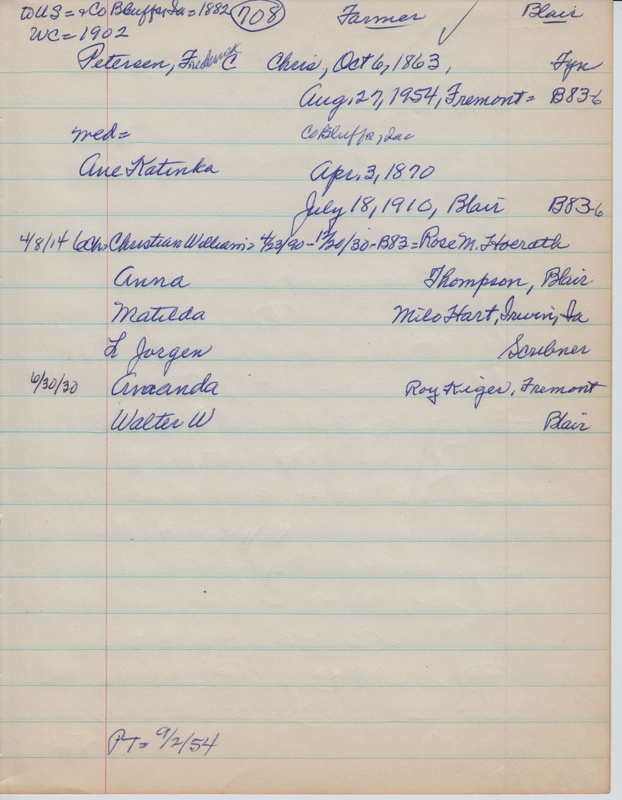 to US = & Co Bluffs, Ia = 1882 708 Farmer ✓ Blair
WC = 1902
Petersen, Frederick C Chris, Oct 6, 1863, Fyn
Aug. 27, 1954, Fremont = B83-6
med = Co Bluffs, Ia =
Ane Katinka Apr. 3, 1870
July 18, 1910, Blair B83-6
4/8/14 6 Ch = Christian William = 4/23/90 - 12/20/30 - B83 = Rose M. Hoerath
Anna Thompson, Blair
Matilda Milo Hart, Irwin, Ia
L Jorgen Scribner
6/30/30 Amanda Roy Kiger, Fremont
Walter W Blair
PT = 9/2/54